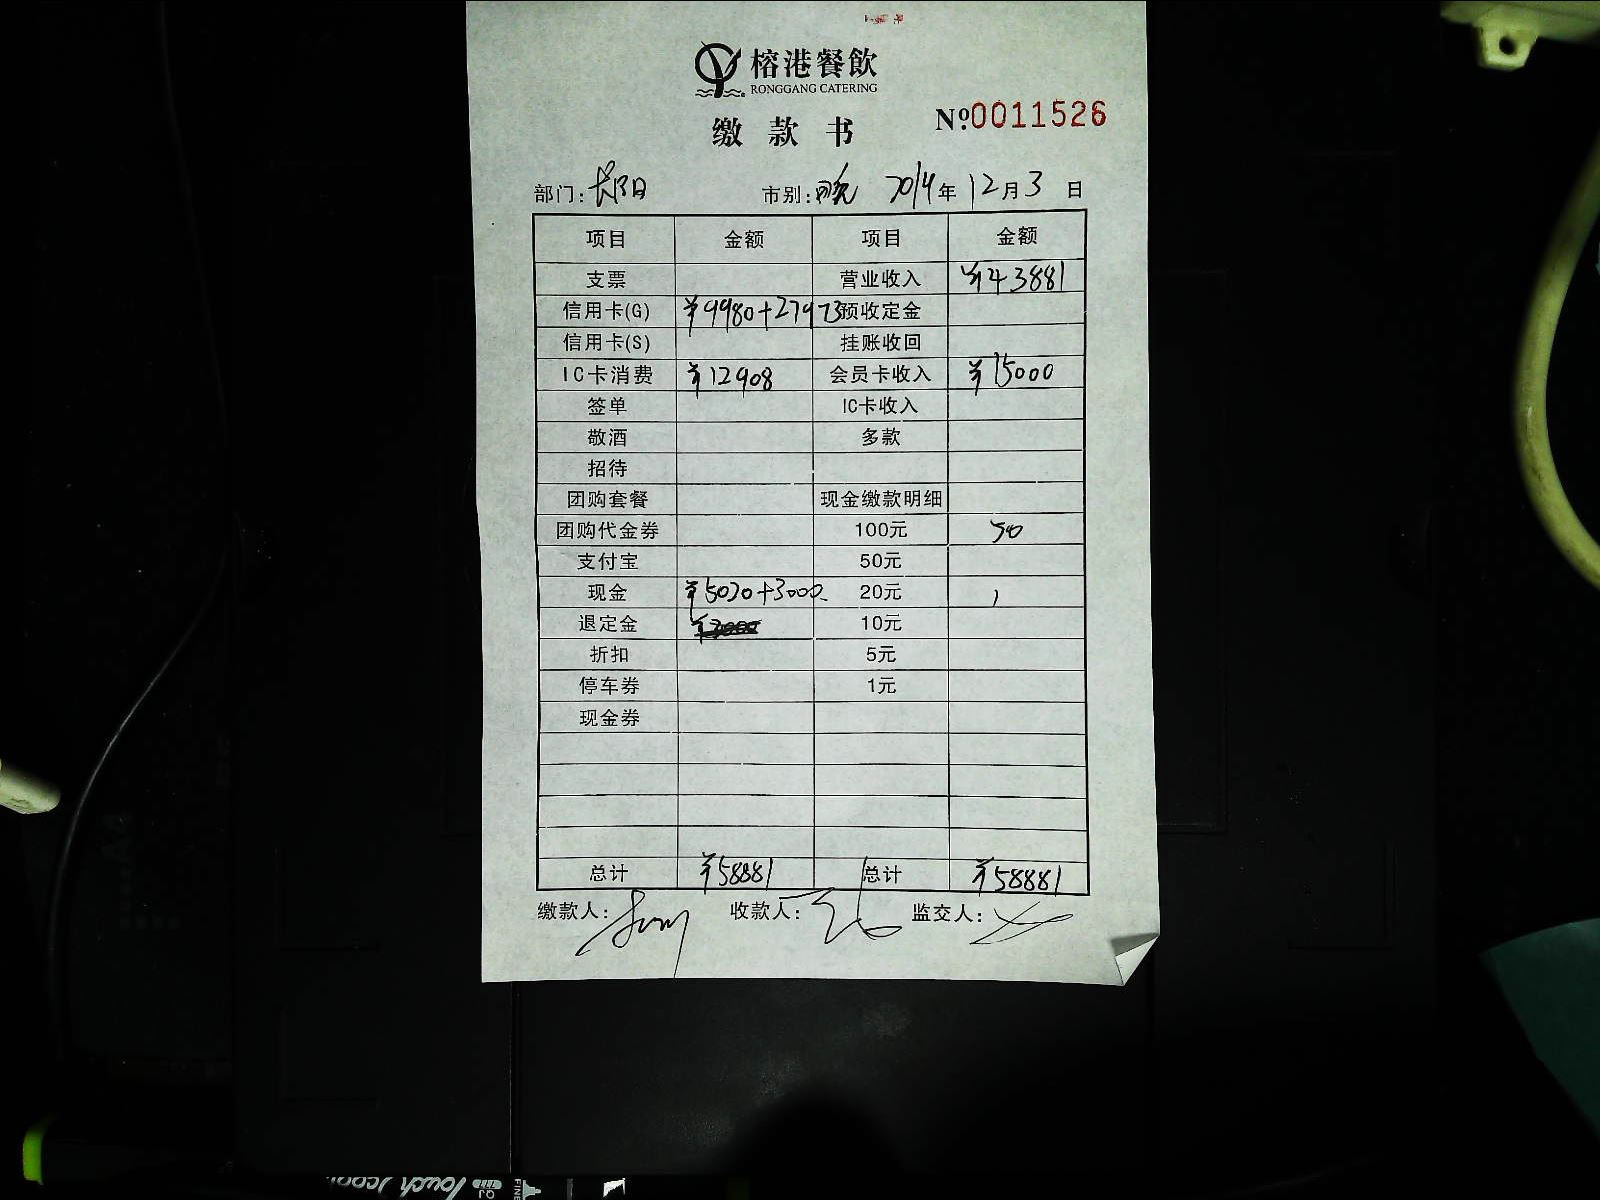 榕港餐飲
RONGGANG CATERING
缴款书
№0011526
部门: 市别:晚 2014年12月3日
项目 金额 项目 金额
支票 营业收入 ¥43881
信用卡(G) ¥9980+27973 预收定金
信用卡(S) 挂账收回
IC卡消费 ¥12908 会员卡收入 ¥15000
签单 IC卡收入
敬酒 多款
招待
团购套餐 现金缴款明细
团购代金券 100元 50
支付宝 50元
现金 ¥5020+3000 20元 1
退定金 10元
折扣 5元
停车券 1元
现金券
总计 ¥58881 总计 ¥58881
缴款人: 收款人: 监交人: